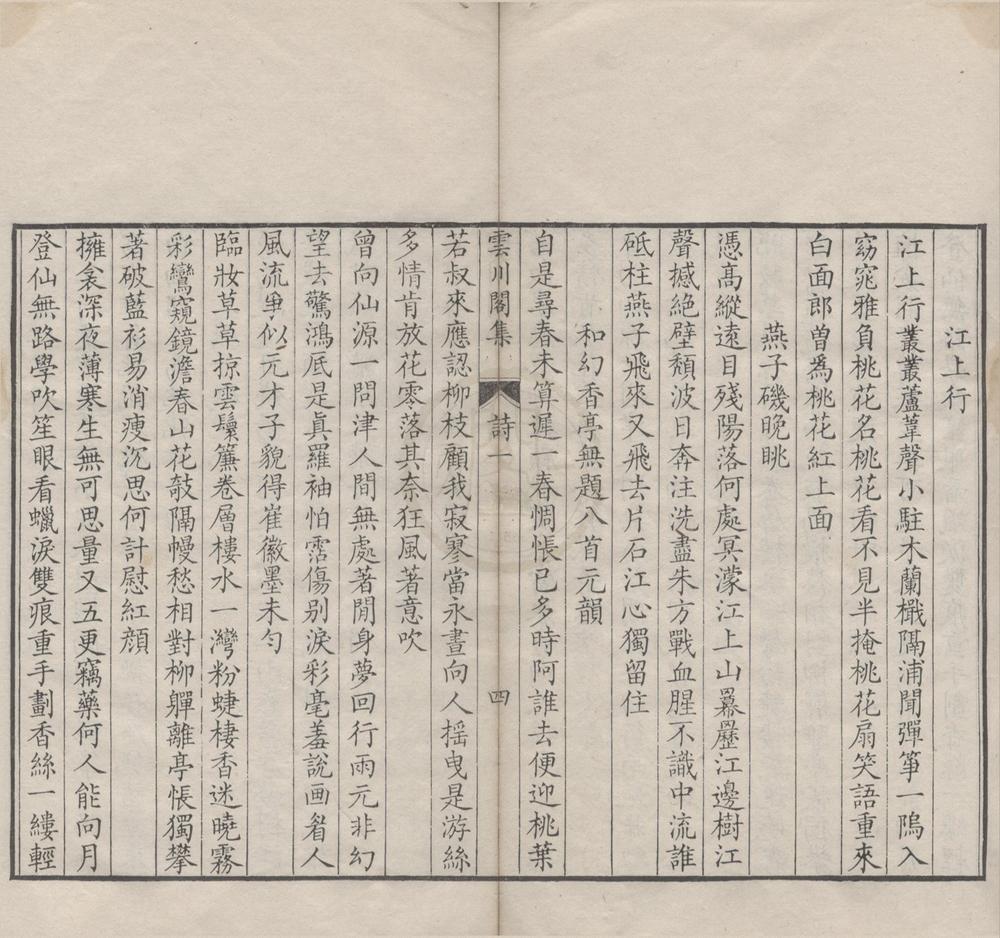 江上行
江上行叢叢蘆葦聲小駐木蘭檝隔浦聞彈箏一隖入
窈窕雅負桃花名桃花看不見半掩桃花扇笑語重來
白面郎曾爲桃花紅上面
燕子磯晚眺
憑高縱遠目殘陽落何處冥濛江上山冪歷江邊樹江
聲撼絕壁頹波日奔注洗盡朱方戰血腥不識中流誰
砥柱燕子飛來又飛去片石江心獨留住
和幻香亭無題八首元韻
自是尋春未算遲一春惆悵已多時阿誰去便迎桃葉
雲川閣集 詩一 四
若叔來應認柳枝顧我寂寥當永晝向人摇曳是游絲
多情肯放花零落其奈狂風著意吹
曾向仙源一問津人間無處著閒身夢回行雨元非幻
望去驚鴻底是眞羅袖怕霑傷别淚彩毫羞說画眉人
風流爭似元才子貌得崔徽墨未勻
臨妝草草掠雲鬟簾卷層樓水一灣粉蜨棲香迷曉霧
彩鸞窺鏡澹春山花敧隔幔愁相對柳嚲離亭悵獨攀
著破藍衫易消瘦沉思何計慰紅顔
擁衾深夜薄寒生無可思量又五更竊藥何人能向月
登仙無路學吹笙眼看蠟淚雙痕重手劃香絲一縷輕